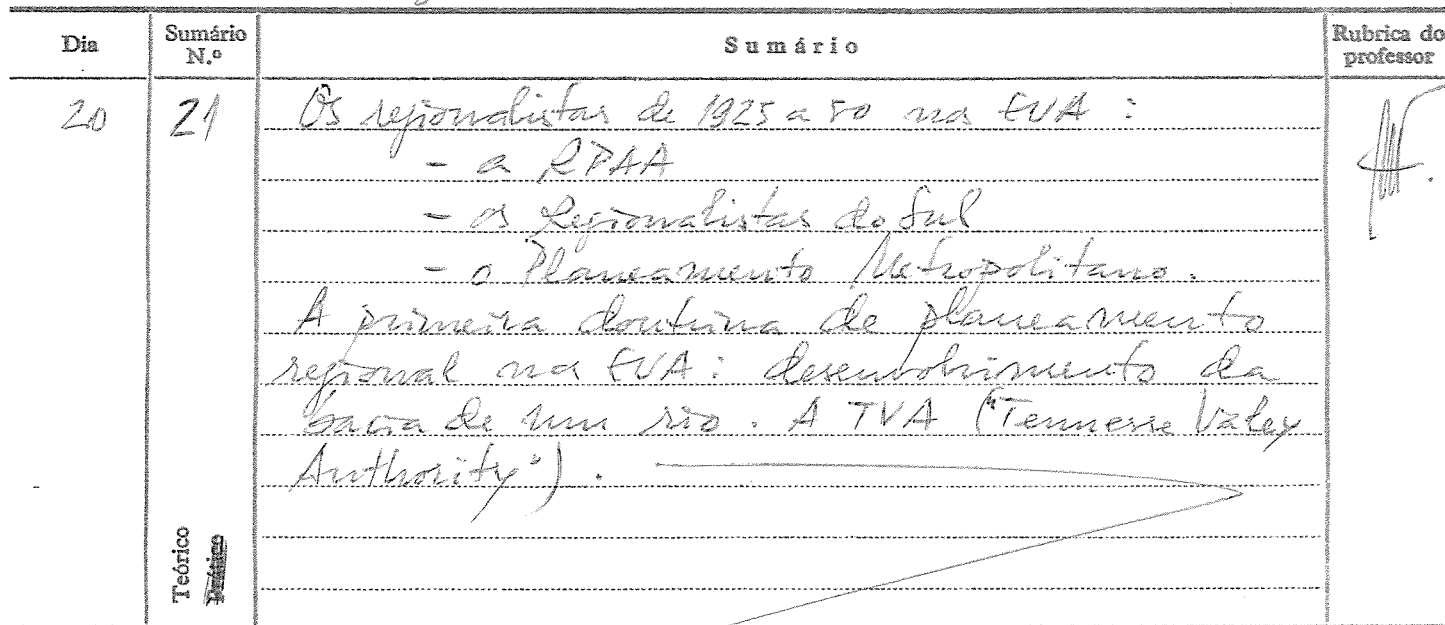 Dia Sumário N.º Sumário Rubrica do professor
20 21 Os regionalistas de 1925 a 50 nos EUA :
- a RPAA
- os Regionalistas do Sul
- o Planeamento Metropolitano.
A primeira doutrina de planeamento
regional nos EUA : desenvolvimento da
bacia de um rio. A TVA ("Tennesse Valey
Authority").
Teórico
Prático